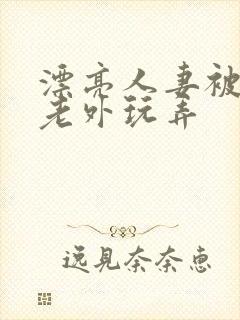 漂亮人妻被
老外玩弄
远见奈奈惠